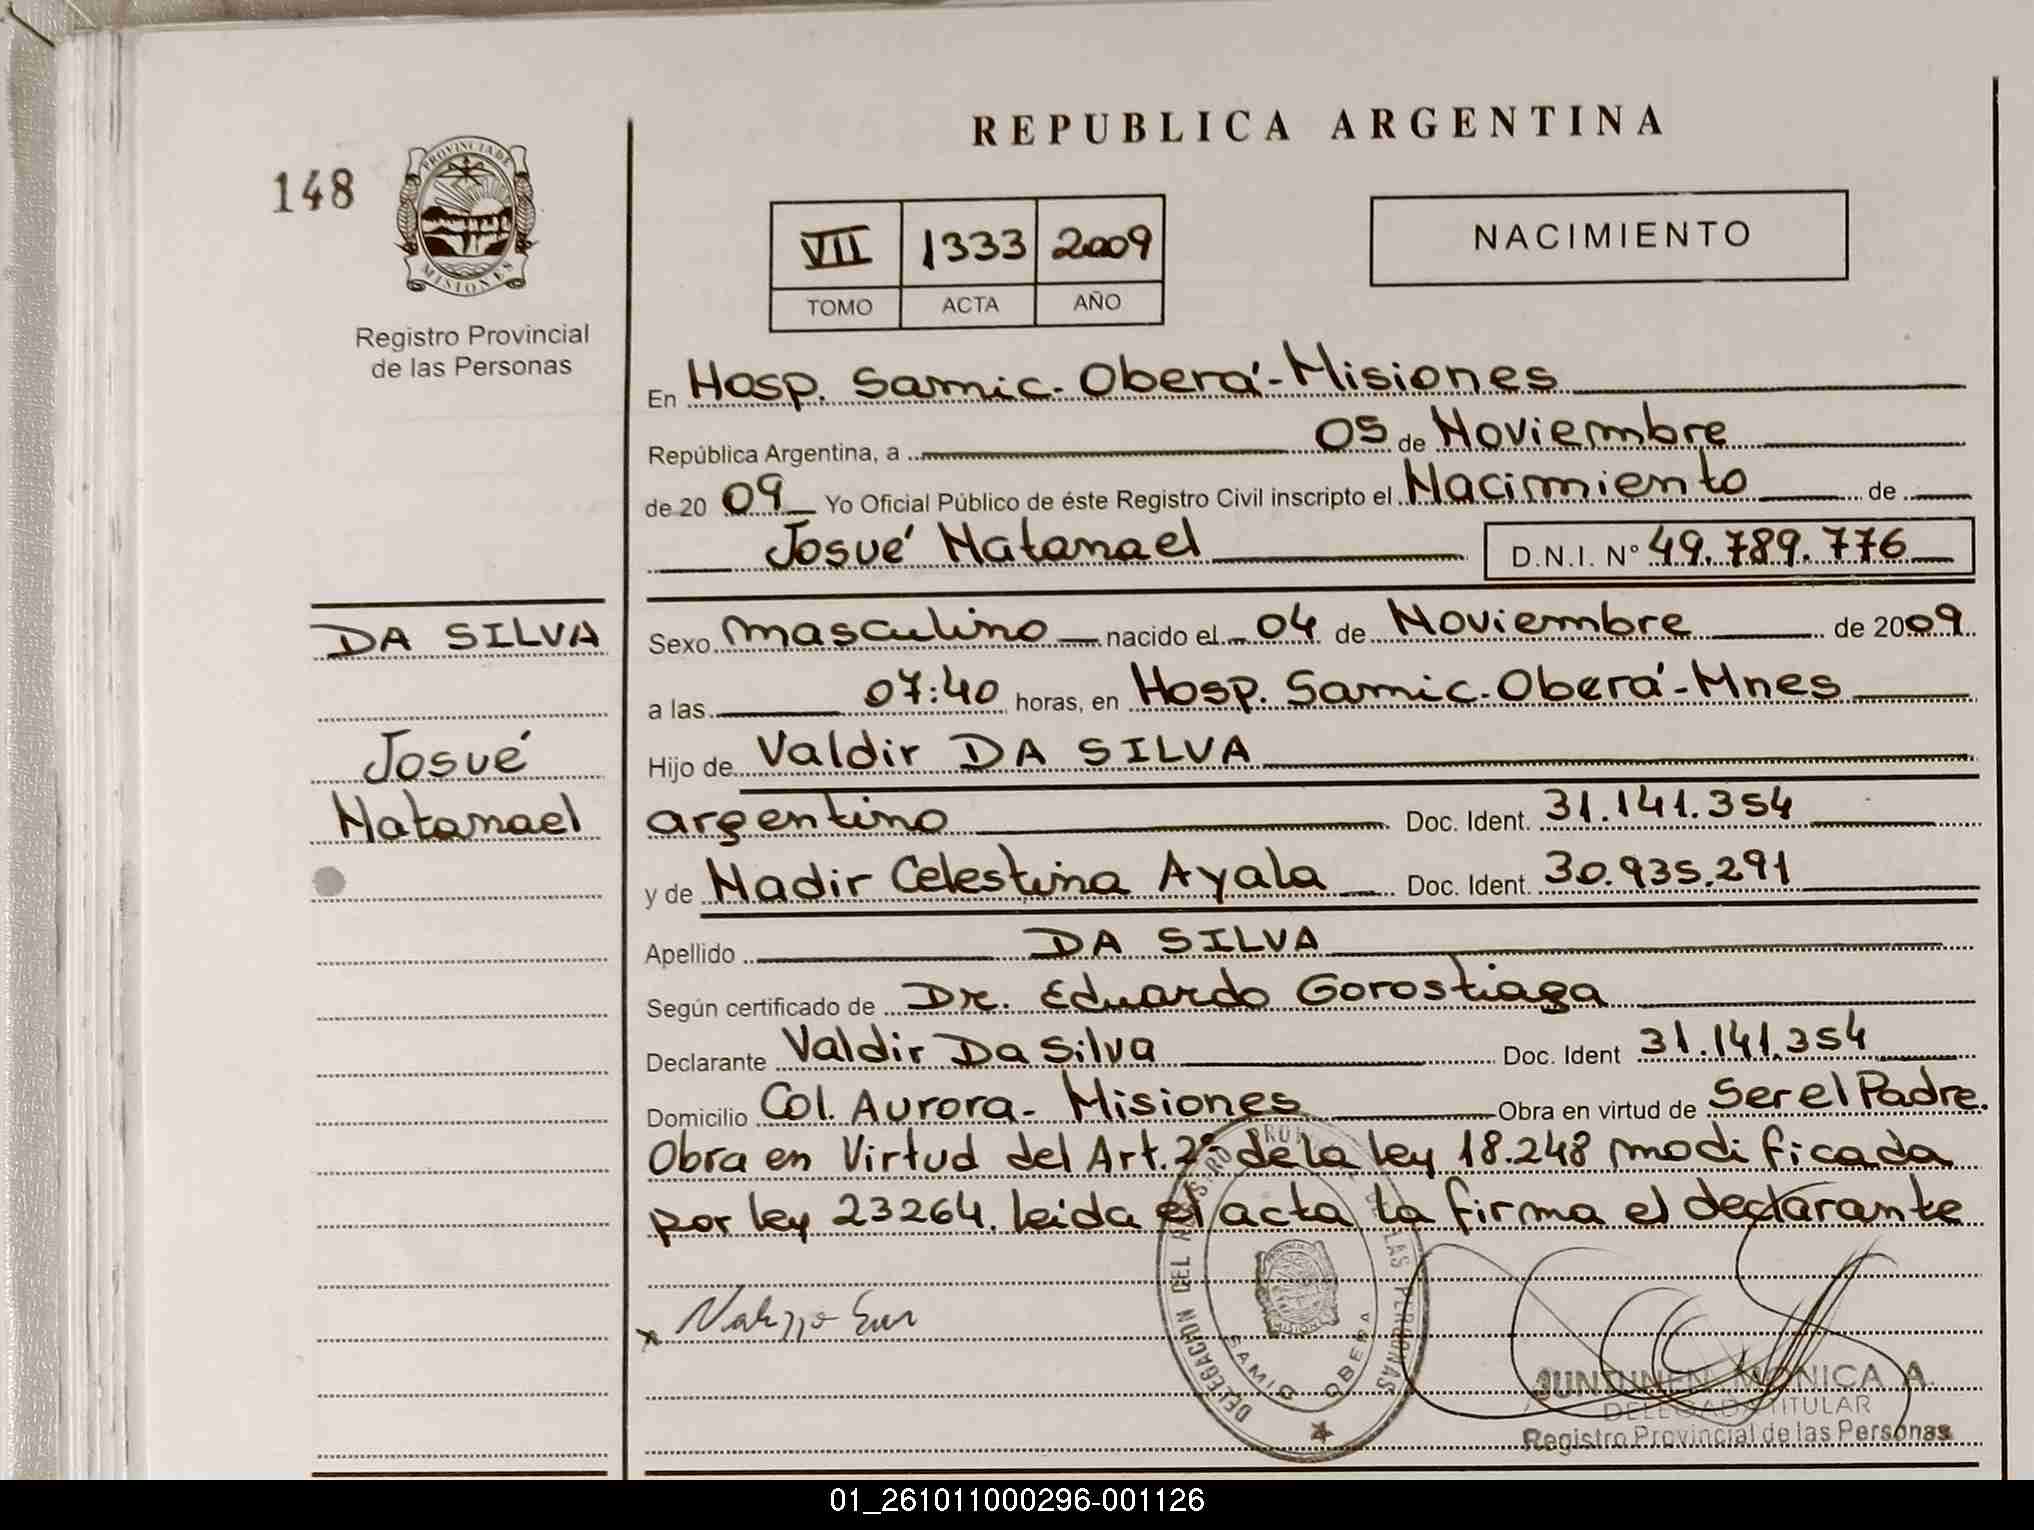 REPUBLICA ARGENTINA
148
PROVINCIA DE
MISIONES
Registro Provincial
de las Personas
VII 1333 2009
TOMO ACTA AÑO
NACIMIENTO
En Hosp. Samic. Oberá - Misiones
República Argentina, a 05 de Noviembre
de 2009 Yo Oficial Público de éste Registro Civil inscripto el Nacimiento de
Josué Natanael D.N.I. N° 49.789.776
DA SILVA
Josué
Natanael
Sexo masculino nacido el 04 de Noviembre de 2009
a las 07:40 horas, en Hosp. Samic. Oberá - Mnes
Hijo de Valdir DA SILVA
argentino Doc. Ident. 31.141.354
y de Nadir Celestina Ayala Doc. Ident. 30.935.291
Apellido DA SILVA
Según certificado de Dr. Eduardo Gorostiaga
Declarante Valdir Da Silva Doc. Ident 31.141.354
Domicilio Col. Aurora - Misiones Obra en virtud de Ser el Padre.
Obra en Virtud del Art. 2° de la ley 18.248 modificada
por ley 23264. leida el acta la firma el declarante
DELEGACION DEL LAS PERSONAS
SAMIC OBERA
MONICA A.
DELEGADA TITULAR
Registro Provincial de las Personas
01_261011000296-001126